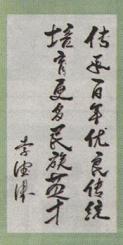 传承百年优良传统
培育更多民族英才
李德珠